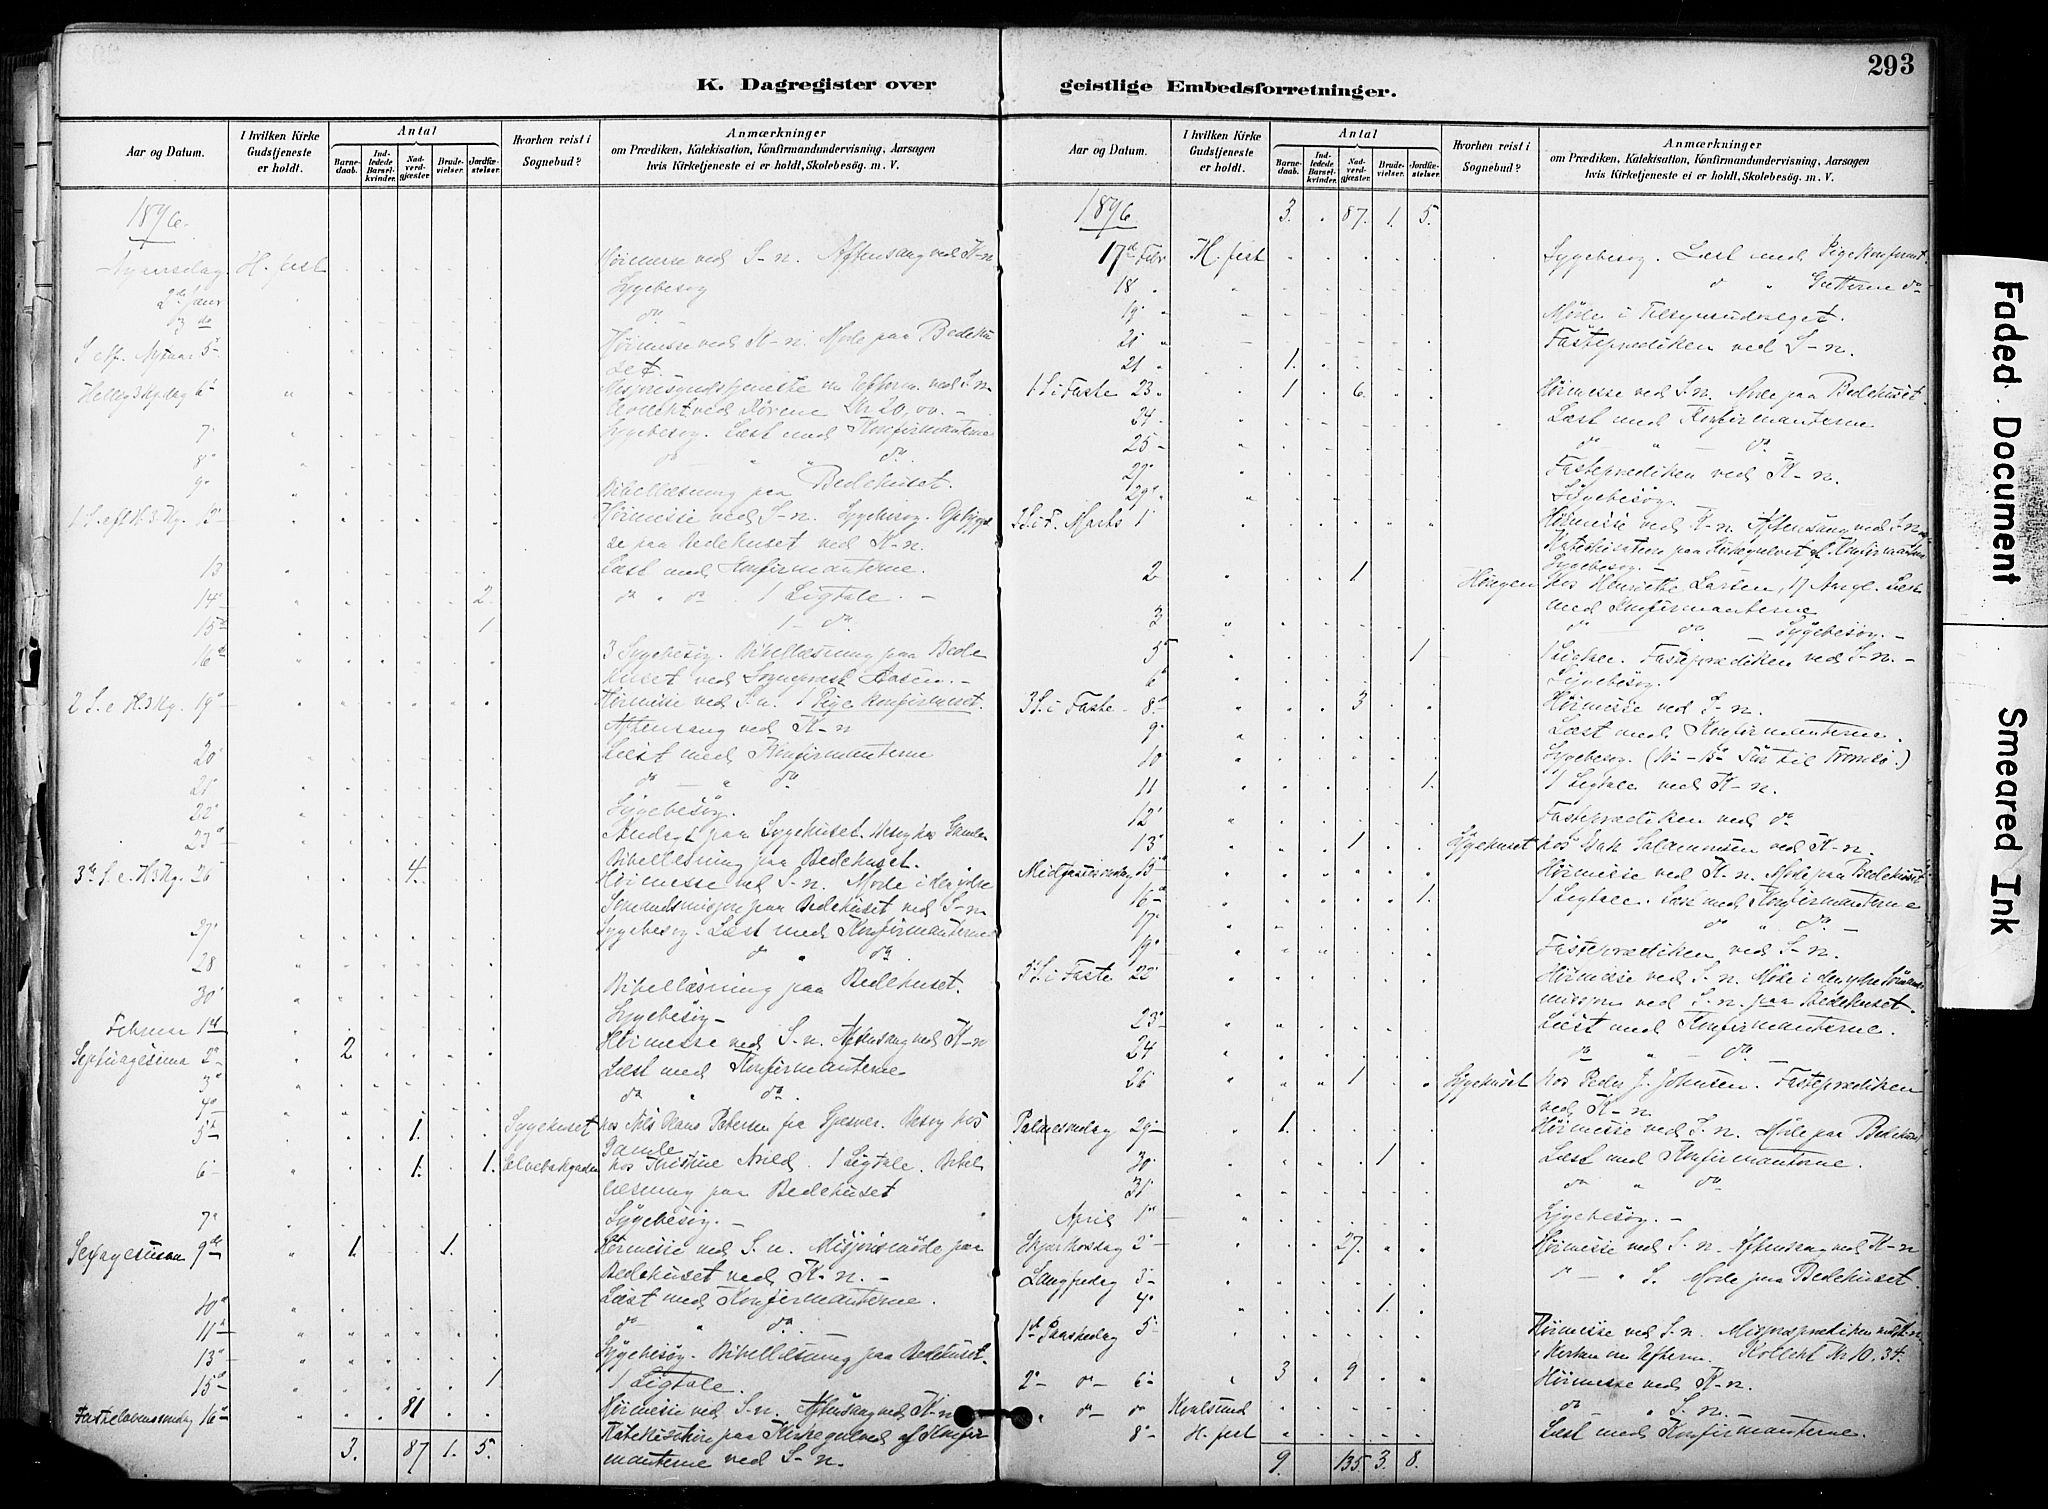 293
K. Dagregister over geistlige Embedsforretninger.
Aar og Datum.
I hvilken Kirke Gudstjeneste er holdt.
Antal
Barnedaab.
Indledede Barselkvinder.
Nadverdgjæster.
Brudevielser.
Jordfæstelser.
Hvorhen reist i Sognebud?
Anmærkninger
om Prædiken, Katekisation, Konfirmandundervisning, Aarsagen
hvis Kirketjeneste ei er holdt, Skolebesøg. m. V.
1896.
Nyaarsdag H. fest Høimesse ved S-n. Aftensang ved K-n
2de Janr Sygebesøg
3 do do
S. e. Nyaar 5 Høimesse ved K-n. Møde paa Bedehu
set
Hellig 3 Kgdag 6 ved S-n.
Kr 20,00.
7 Sygebesøg. Læst med Konfirmanterne
8 do " do
9 Bibellæsning paa Bedehuset.
1 S. eft H. 3 Kg. 12 Høimesse ved S-n. Sygebesøg.
se paa Bedehuset ved K-n.
13 Læst med Konfirmanterne.
14 2. do " do 1 Ligtale.
15 1 1 - do.
16 3 Sygebesøg. Bibellæsning paa Bede
huset ved Sogneprest Aasen.
2 S. e H. 3 Kg. 19 Høimesse ved S.n. 1 Pige Konfirmeret.
Aftensang ved K-n
20 Læst med Konfirmanterne
21 do " do
22 Sygebesøg.
23 Andagt paa Sygehuset. Besøg hos Gamle
Bibellæsning paa Bedehuset.
3die S. e. H. 3 Kg. 26 4. Høimesse ved S-n. Møde i den ydre
Sømandsmisjon paa Bedehuset ved S-n
27 Sygebesøg. Læst med Konfirmanterne
28 do " do
30 Bibellæsning paa Bedehuset.
Februar 1st Sygebesøg
Septuagesima 2 2 Høimesse ved S-n. Aftensang ved K-n
3 Læst med Konfirmanterne
4 do " do.
5 1. Sygehuset hos Nils Claus Petersen fra Gjesver. Besøg hos
Gamle
6 1. 1. Elvebakgaden hos Kristine Arild. 1 Ligtale. Bibel
læsning paa Bedehuset
7 Sygebesøg.
Sexagesima 9de 1. 1. Høimesse ved S.n. Misjonsmøde paa
Bedehuset ved K-n.
10 Læst med Konfirmanterne.
11 do " do.
13 Sygebesøg. Bibellæsning paa Bedehuset.
15 1 1 Ligtale.
Fastelavnssøndag 16 81 Høimesse ved S-n. Aftensang ved K-n
Katekisation paa Kirkegulvet af Konfir
manterne ved S-n.
3. 87 1. 5.
Aar og Datum.
I hvilken Kirke Gudstjeneste er holdt.
Antal
Barnedaab.
Indledede Barselkvinder.
Nadverdgjæster.
Brudevielser.
Jordfæstelser.
Hvorhen reist i Sognebud?
Anmærkninger
om Prædiken, Katekisation, Konfirmandundervisning, Aarsagen
hvis Kirketjeneste ei er holdt, Skolebesøg. m. V.
1896 3. " 87. 1. 5.
17de Febr H. fest Sygebesøg. Læst med Pigekonfirmt.
18 do " Gutterne do
19 Møde i Tilsynsudvalget.
Fasteprædiken ved S-n.
21 1.
1 S. i Faste 23 1 6. Høimesse ved S.n. Møde paa Bedehuset.
24 Læst med Konfirmanterne
25 do " do
27 Fasteprædiken ved K-n.
29 Sygebesøg.
2 S. i F. Marts 1 Høimesse ved K-n. Aftensang ved S-n og
Katekisation paa Kirkegulvet af Konfirmanterne
Sygebesøg.
2 1 Hos Henriette Larsen, 17 Aar gl. Læst
med Konfirmanterne
3 do - do - Sygebesøg.
5 1 1 Ligtale. Fasteprædiken ved S-n.
6 Sygebesøg.
3 S. i Faste 8 3 Høimesse ved S-n.
9 Læst med Konfirmanterne.
10 Sygebesøg. til Tromsø.)
11 1. 1 Ligtale ved K-n.
12 Fasteprædiken ved do
13 1 Sygehuset hos Isak Salamonsen ved K-n.
Midfastesøndag 15 Høimesse ved K-n. Møde paa Bedehuset
16 1. 1 Ligtale. Læst med Konfirmanterne
17 do " do.
19 Fasteprædiken ved S-n.
5 S. i Faste 22 Høimesse ved S-n. Møde i den ydre Sømands
misjon ved S.n. paa Bedehuset.
23 Læst med Konfirmanterne.
24 do " - do
26 1 Sygehuset hos Peder J. Johnsen. Fasteprædiken
ved K-n.
Palmesøndag 29 1. Høimesse ved S.n. Møde paa Bedehuset
30 1 Læst med Konfirmanterne.
31 do " do
April 1 Sygebesøg.
Skjærtorsdag 2 27. Høimesse ved S-n. Aftensang ved K-n
Langfredag 3 do - " S. Møde paa Bedehuset.
4 1.
1ste Paaskedag 5 Høimesse ved S-n. Misjonsprædiken ved K-n
i Kirken om Efterm. Kollekt Kr 10.34.
2 - do - 6 3 9 Høimesse ved K-n.
" do - do Kvalsund do - " S.n.
8 H. fest Læst med Konfirmanterne.
9. 135. 3. 8.
Faded Document
Smeared Ink